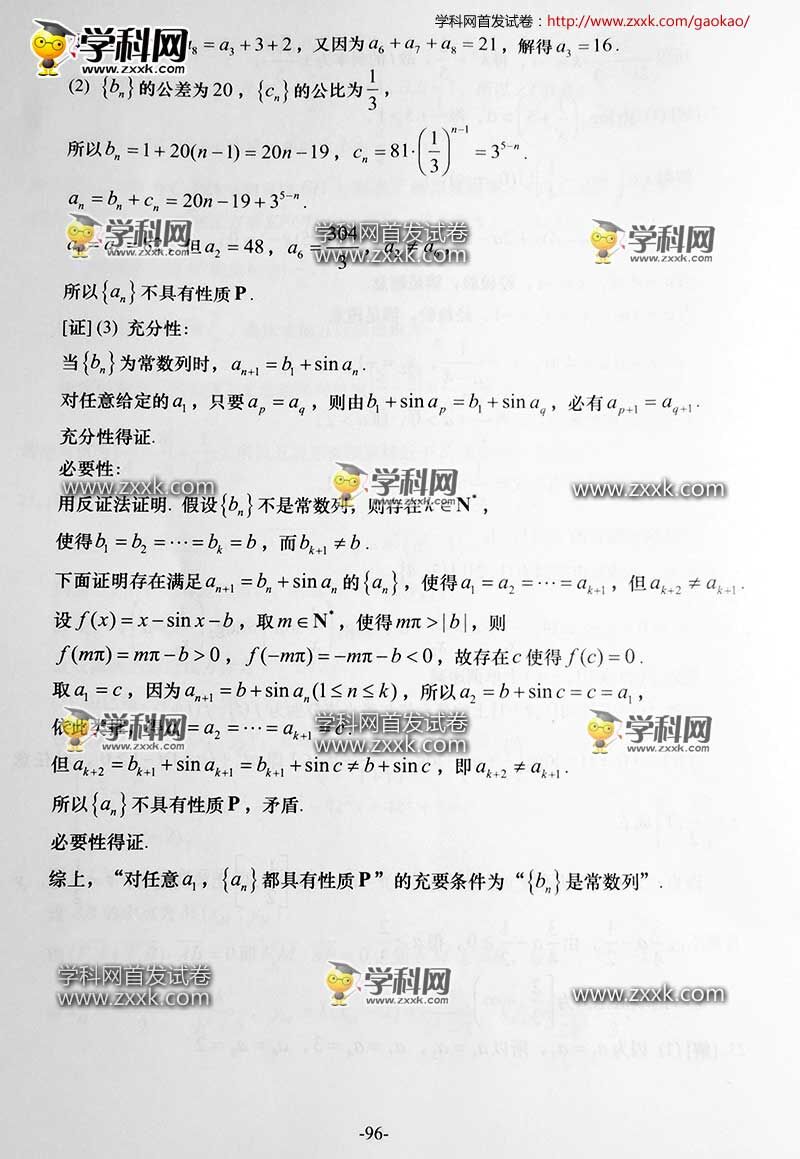 学科网首发试卷：http://www.zxxk.com/gaokao/
学科网
www.zxxk.com
₈ = a₃ + 3 + 2，又因为 a₆ + a₇ + a₈ = 21，解得 a₃ = 16.
(2) {bₙ} 的公差为 20，{cₙ} 的公比为 1/3，
所以 bₙ = 1 + 20(n − 1) = 20n − 19，cₙ = 81·(1/3)ⁿ⁻¹ = 3⁵⁻ⁿ.
aₙ = bₙ + cₙ = 20n − 19 + 3⁵⁻ⁿ.
但 a₂ = 48，a₆ = 304/3，a₂ ≠ a₆，
学科网
www.zxxk.com
学科网首发试卷
www.zxxk.com
学科网
www.zxxk.com
所以 {aₙ} 不具有性质 P.
[证] (3) 充分性：
当 {bₙ} 为常数列时，aₙ₊₁ = b₁ + sin aₙ.
对任意给定的 a₁，只要 aₚ = a_q，则由 b₁ + sin aₚ = b₁ + sin a_q，必有 aₚ₊₁ = a_{q+1}.
充分性得证.
必要性：
www.zxxk.com
学科网
www.zxxk.com
www.zxxk.com
用反证法证明. 假设 {bₙ} 不是常数列，则存在 k ∈ N*，
使得 b₁ = b₂ = ⋯ = bₖ = b，而 bₖ₊₁ ≠ b.
下面证明存在满足 aₙ₊₁ = bₙ + sin aₙ 的 {aₙ}，使得 a₁ = a₂ = ⋯ = aₖ₊₁，但 aₖ₊₂ ≠ aₖ₊₁.
设 f(x) = x − sin x − b，取 m ∈ N*，使得 mπ > |b|，则
f(mπ) = mπ − b > 0，f(−mπ) = −mπ − b < 0，故存在 c 使得 f(c) = 0.
取 a₁ = c，因为 aₙ₊₁ = b + sin aₙ (1 ≤ n ≤ k)，所以 a₂ = b + sin c = c = a₁，
依此类推，得 a₁ = a₂ = ⋯ = aₖ₊₁ = c.
学科网
www.zxxk.com
学科网首发试卷
www.zxxk.com
学科网
www.zxxk.com
但 aₖ₊₂ = bₖ₊₁ + sin aₖ₊₁ = bₖ₊₁ + sin c ≠ b + sin c，即 aₖ₊₂ ≠ aₖ₊₁.
所以 {aₙ} 不具有性质 P，矛盾.
必要性得证.
综上，“对任意 a₁，{aₙ} 都具有性质 P”的充要条件为“{bₙ} 是常数列”.
学科网首发试卷
www.zxxk.com
学科网
www.zxxk.com
学科网首发试卷
www.zxxk.com
-96-